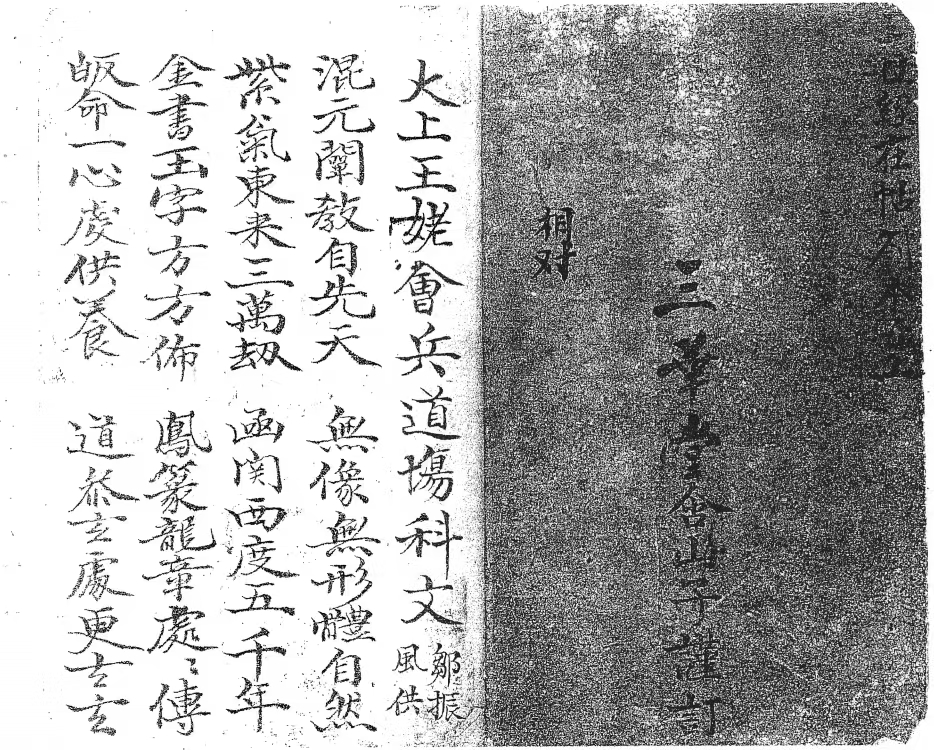 相对
三華堂舍山子謹訂
太上王姥會兵道場科文
鄒振
風供
混元闡教自先天 無像無形體自然
紫氣東来三萬劫 函関西度五千年
金書玉字方方佈 鳳篆龍章處〻傳
皈命一心虔供養 道叅玄處更玄玄